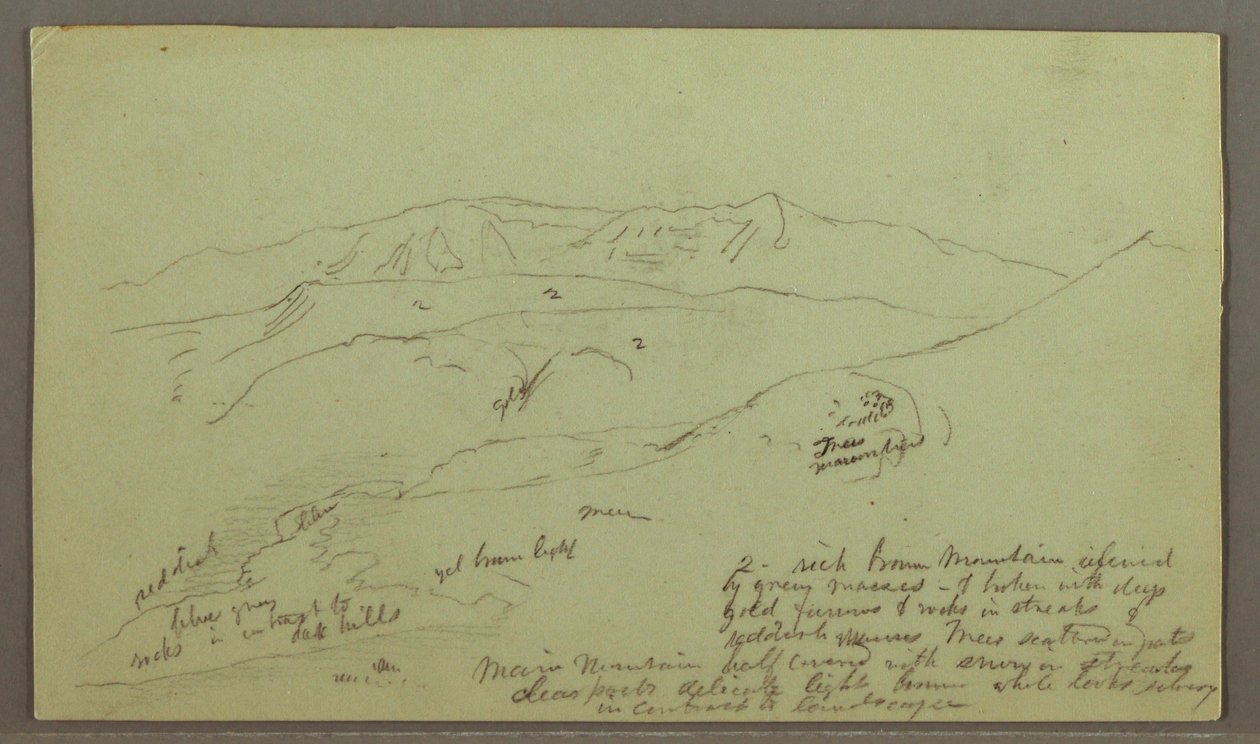 2
2
2
gold
Trees
maroon
blue
reddish
yel brown light
silver grey
rocks in contrast to
dark hills
2 - rich Brown Mountain
by grey masses - & broken with deep
gold furrows & rocks in streaks &
reddish masses, Trees scattered in parts
Main Mountain half covered with snow in streaks
Clear parts delicate light brown whole looks silvery
in contrast to landscape